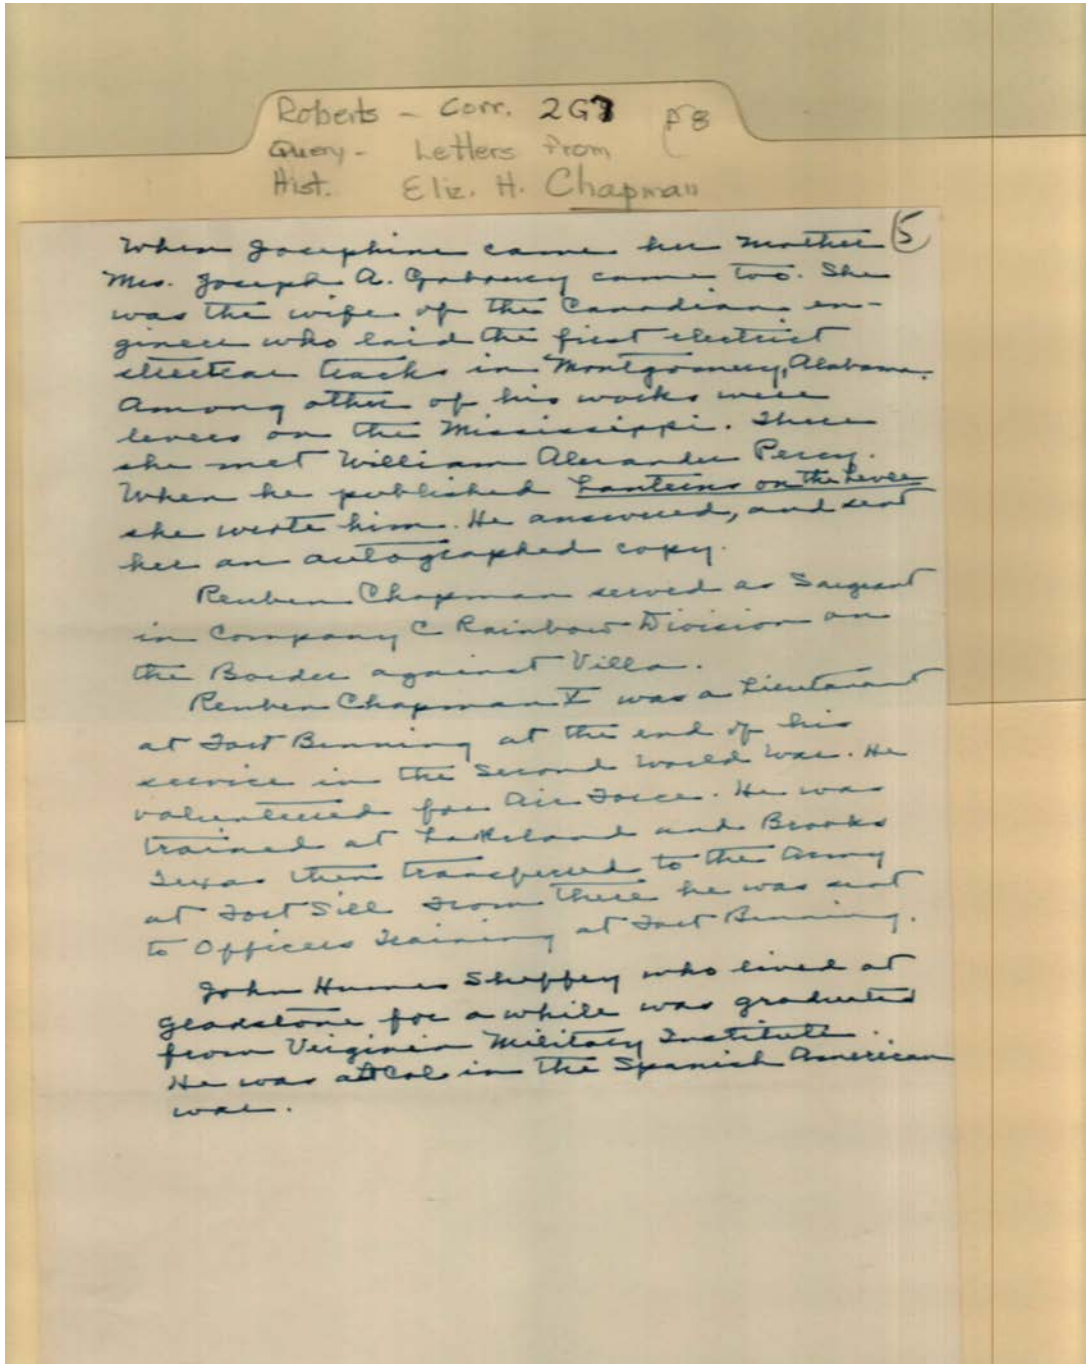 Roberts - Corr. 2G7 P8
Query - Letters From
Hist. Eliz. H. Chapman
5
When Josephine came her mother
Mrs. Joseph A. Gaboury came too. She
was the wife of the Canadian en-
gineer who laid the first electric
streetcar tracks in Montgomery, Alabama.
Among other of his works were
levees on the Mississippi. There
she met William Alexander Percy.
When he published Lanterns on the Levee
she wrote him. He answered, and sent
her an autographed copy.
Reuben Chapman served as Sargeant
in Company C Rainbow Division on
the Border against Villa.
Reuben Chapman V was a Lieutenant
at Fort Benning at the end of his
service in the Second World War. He
volunteered for Air Force. He was
trained at Lakeland and Brooks
Texas then transferred to the Army
at Fort Sill From there he was sent
to Officers Training at Fort Benning.
John Humes Sheffey who lived at
Gladstone for a while was graduated
from Virginia Military Institute.
He was a Col in the Spanish American
war.